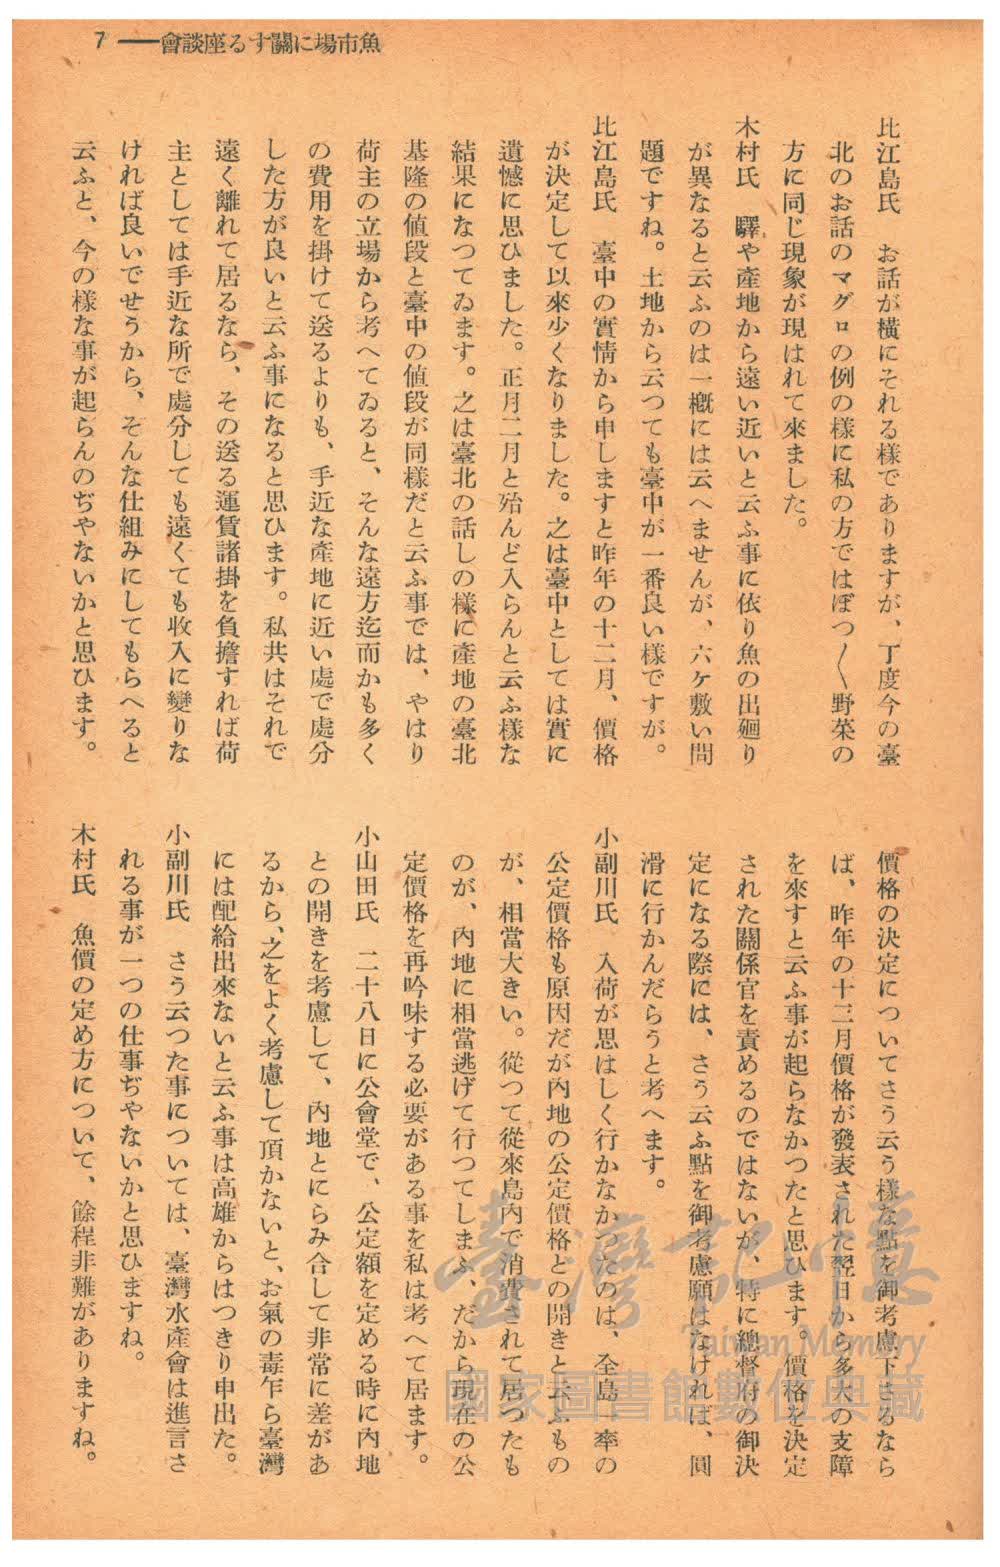 魚市場に關する座談會――7
比江島氏　お話が横にそれる樣でありますが、丁度今の臺
北のお話のマグロの例の樣に私の方ではぼつ〳〵野菜の
方に同じ現象が現はれて來ました。
木村氏　驛や產地から遠い近いと云ふ事に依り魚の出廻り
が異なると云ふのは一概には云へませんが、六ケ敷い問
題ですね。土地から云つても臺中が一番良い樣ですが。
比江島氏　臺中の實情から申しますと昨年の十二月、價格
が決定して以來少くなりました。之は臺中としては實に
遺憾に思ひました。正月二月と殆んど入らんと云ふ樣な
結果になつてゐます。之は臺北の話しの樣に產地の臺北
基隆の値段と臺中の値段が同樣だと云ふ事では、やはり
荷主の立場から考へてゐると、そんな遠方迄而かも多く
の費用を掛けて送るよりも、手近な產地に近い處で處分
した方が良いと云ふ事になると思ひます。私共はそれで
遠く離れて居るなら、その送る運賃諸掛を負擔すれば荷
主としては手近な所で處分しても遠くても收入に變りな
ければ良いでせうから、そんな仕組みにしてもらへると
云ふと、今の樣な事が起らんのぢやないかと思ひます。
價格の決定についてさう云う樣な點を御考慮下さるなら
ば、昨年の十二月價格が發表された翌日から多大の支障
を來すと云ふ事が起らなかつたと思ひます。價格を決定
された關係官を責めるのではないが、特に總督府の御決
定になる際には、さう云ふ點を御考慮願はなければ、圓
滑に行かんだらうと考へます。
小副川氏　入荷が思はしく行かなかつたのは、全島一率の
公定價格も原因だが內地の公定價格との開きと云ふもの
が、相當大きい。從つて從來島內で消費されて居つたも
のが、內地に相當逃げて行つてしまふ、だから現在の公
定價格を再吟味する必要がある事を私は考へて居ます。
小山田氏　二十八日に公會堂で、公定額を定める時に內地
との開きを考慮して、內地とにらみ合して非常に差があ
るから、之をよく考慮して頂かないと、お氣の毒乍ら臺灣
には配給出來ないと云ふ事は高雄からはつきり申出た。
小副川氏　さう云つた事については、臺灣水產會は進言さ
れる事が一つの仕事ぢやないかと思ひますね。
木村氏　魚價の定め方について、餘程非難がありますね。
臺灣記憶
Taiwan Memory
國家圖書館數位典藏